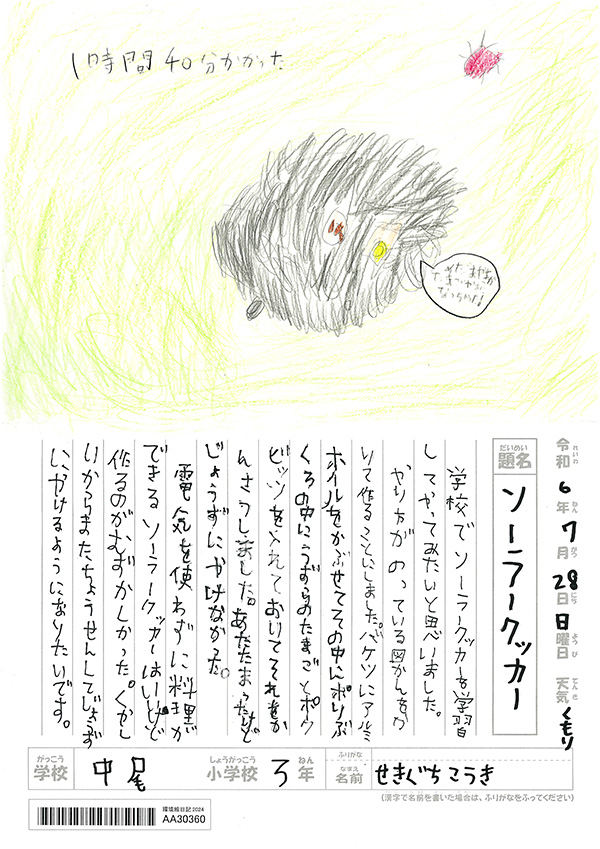 1時間40分かかった
令和6年7月28日日曜日 天気くもり
れいわ ねん がつ にち ようび てんき
だいめい
題名 ソーラークッカー
学校でソーラークッカーを学習
してやってみたいと思いました。
やり方がのっている図かんをか
りて作ることにしました。バケツにアルミ
ホイルをかぶせてその中にポリぶ
くろの中にうずらのたまごとポウ
ビッツを入れておいてそれをか
んさつしました。あたたまったけど
じょうずにやけなかった。
電気を使わずに料理が
できるソーラークッカーはいいけど
作るのがむずかしかった。くやし
いからまたちょうせんしてじょうず
にやけるようになりたいです。
がっこう
学校 中尾
しょうがっこう ねん
小学校 3年
ふりがな
なまえ
名前 せきぐちこうき
(漢字で名前を書いた場合は、ふりがなをふってください)
環境絵日記2024
AA30360